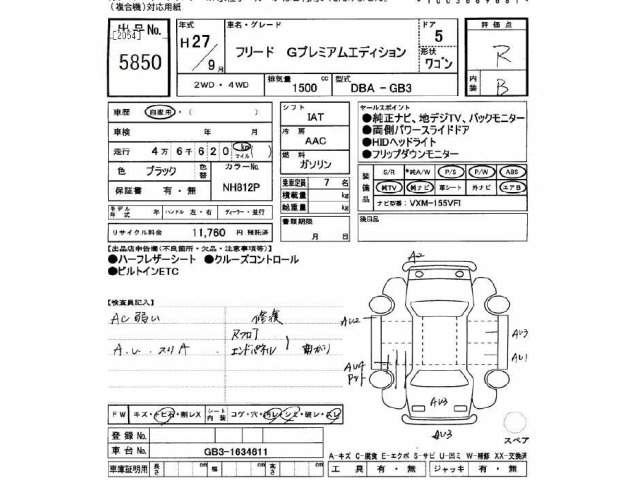 (複合機)対応用紙
出品No. 年式 車名・グレード ドア 評価点
[2054] H27 フリード Gプレミアムエディション 5 R
5850 /9月 形状 ワゴン
2WD・4WD 排気量 1500 cc 型式 DBA-GB3 内装 B
車歴 自家用・( ) シフト IAT セールスポイント
車検 年 月 冷房 AAC ●純正ナビ、地デジTV、バックモニター
走行 4万6千620 km マイル ( ) ●両側パワースライドドア
燃料 ガソリン ●HIDヘッドライト
●フリップダウンモニター
色 ブラック 色替 カラーNo. NH812P
保証書 有・無
乗車定員 7 名 装備品 S/R 純A/W P/S P/W ABS
積載量 kg 純TV 純ナビ 革シート 外ナビ エアB
給重量 kg ナビ型番: VXM-155VFI
モデル年式 年 ハンドル 左・右 ディーラー・並行
書類期限 月 日 後日品
リサイクル料金 11,760 円 預託済
【出品店申告欄(不良箇所・欠品・注意事項等)】
●ハーフレザーシート ●クルーズコントロール
●ビルトインETC
A2
【検査員記入】
AC弱い 修復 AU2
Rフロア AU3
A.U.スリA エンドパネル 曲がり AU4 AU1
AU3
FW キズ・トビ石・割レX シート内装 コゲ・穴・汚レ・シミ・破レ・スレ
AU3
登録No. スペア
車台No. GB3-1634611
A-キズ C-腐食 E-エクボ S-サビ U-凹ミ W-補修 XX-交換済
車庫証明用 長さ cm 幅 cm 高さ cm 工具 有・無 ジャッキ 有・無